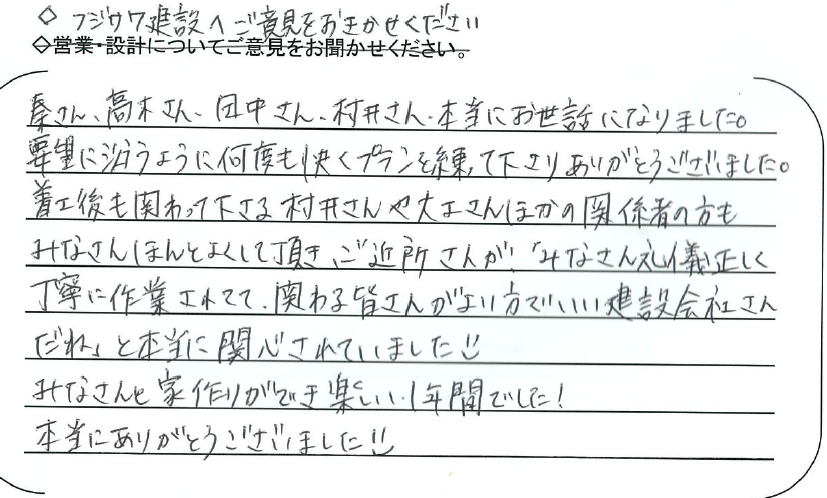 ◇ フジサワ建設へご意見をおきかせください
◇営業・設計についてご意見をお聞かせください。
秦さん、高木さん、田中さん、村井さん、本当にお世話になりました。
要望に沿うように何度も快くプランを練って下さりありがとうございました。
着工後も関わって下さる村井さんや大工さんほかの関係者の方も
みなさんほんとよくして頂き、ご近所さんが、「みなさん礼儀正しく
丁寧に作業されてて、関わる皆さんがよい方でいい建設会社さん
だね」と本当に関心されていました
みなさんと家作りができ楽しい1年間でした!
本当にありがとうございました